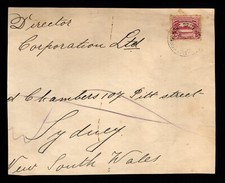 Director
Corporation Ltd
d Chambers 107 Pitt street
Sydney
New South Wales